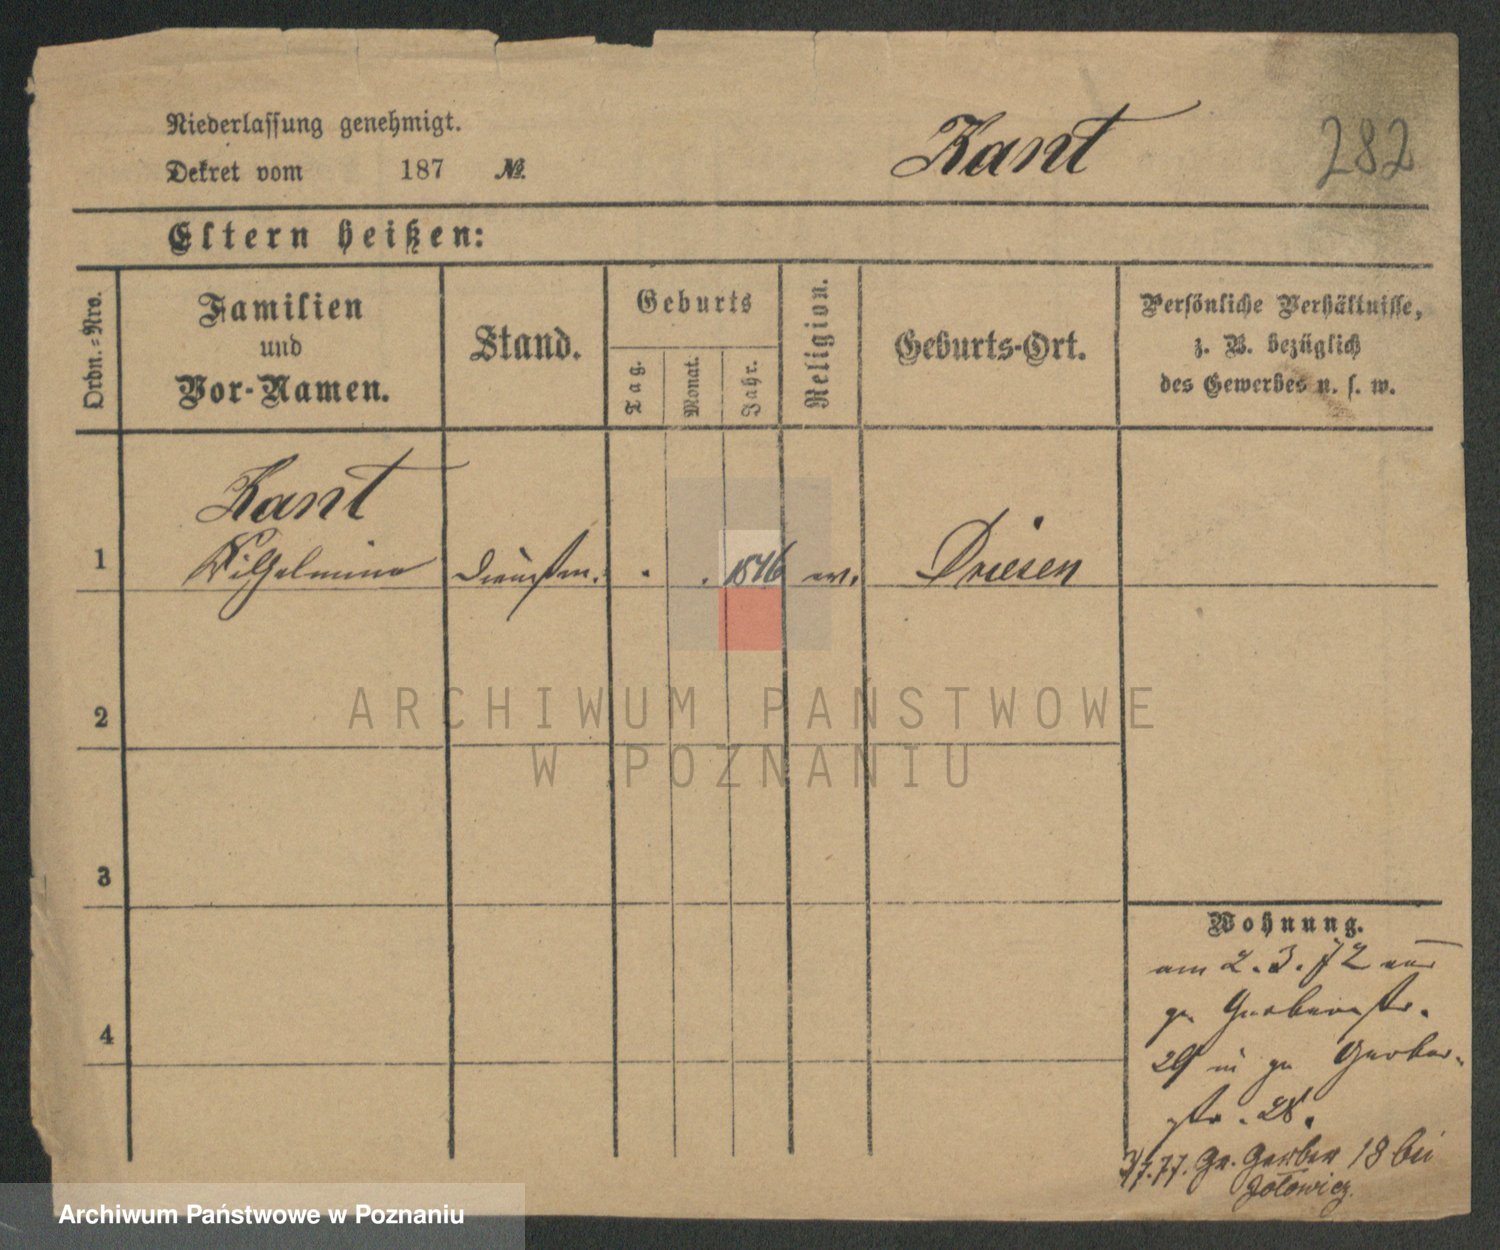 Niederlassung genehmigt.
Dekret vom 187 №.
Kant
282
Eltern heißen:
Ordn.-Nro.
Familien
und
Vor-Namen.
Stand.
Geburts
Tag.
Monat.
Jahr.
Religion.
Geburts-Ort.
Persönliche Verhältnisse,
z. B. bezüglich
des Gewerbes u. s. w.
Kant
1 Wilhelmine . . 1846 Driesen
2
3
4
Wohnung.
am 2.3.72
gr Gerberstr.
in gr Gerber-
str.
77. Gr. Gerber 18 bei
ARCHIWUM PAŃSTWOWE
W POZNANIU
Archiwum Państwowe w Poznaniu